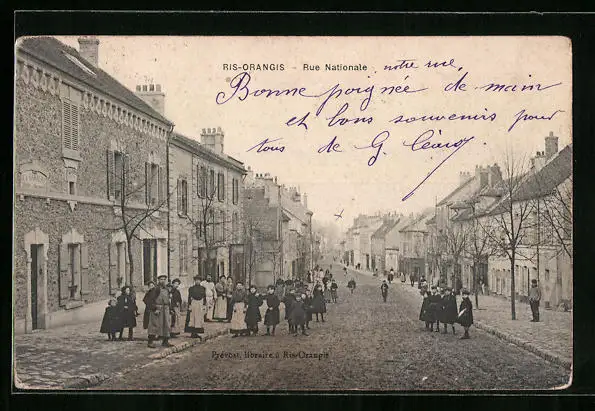 RIS-ORANGIS - Rue Nationale
notre rue,
Bonne poignée de main
et bons souvenirs pour
tous de G. Cléau
Prévost, libraire à Ris-Orangis